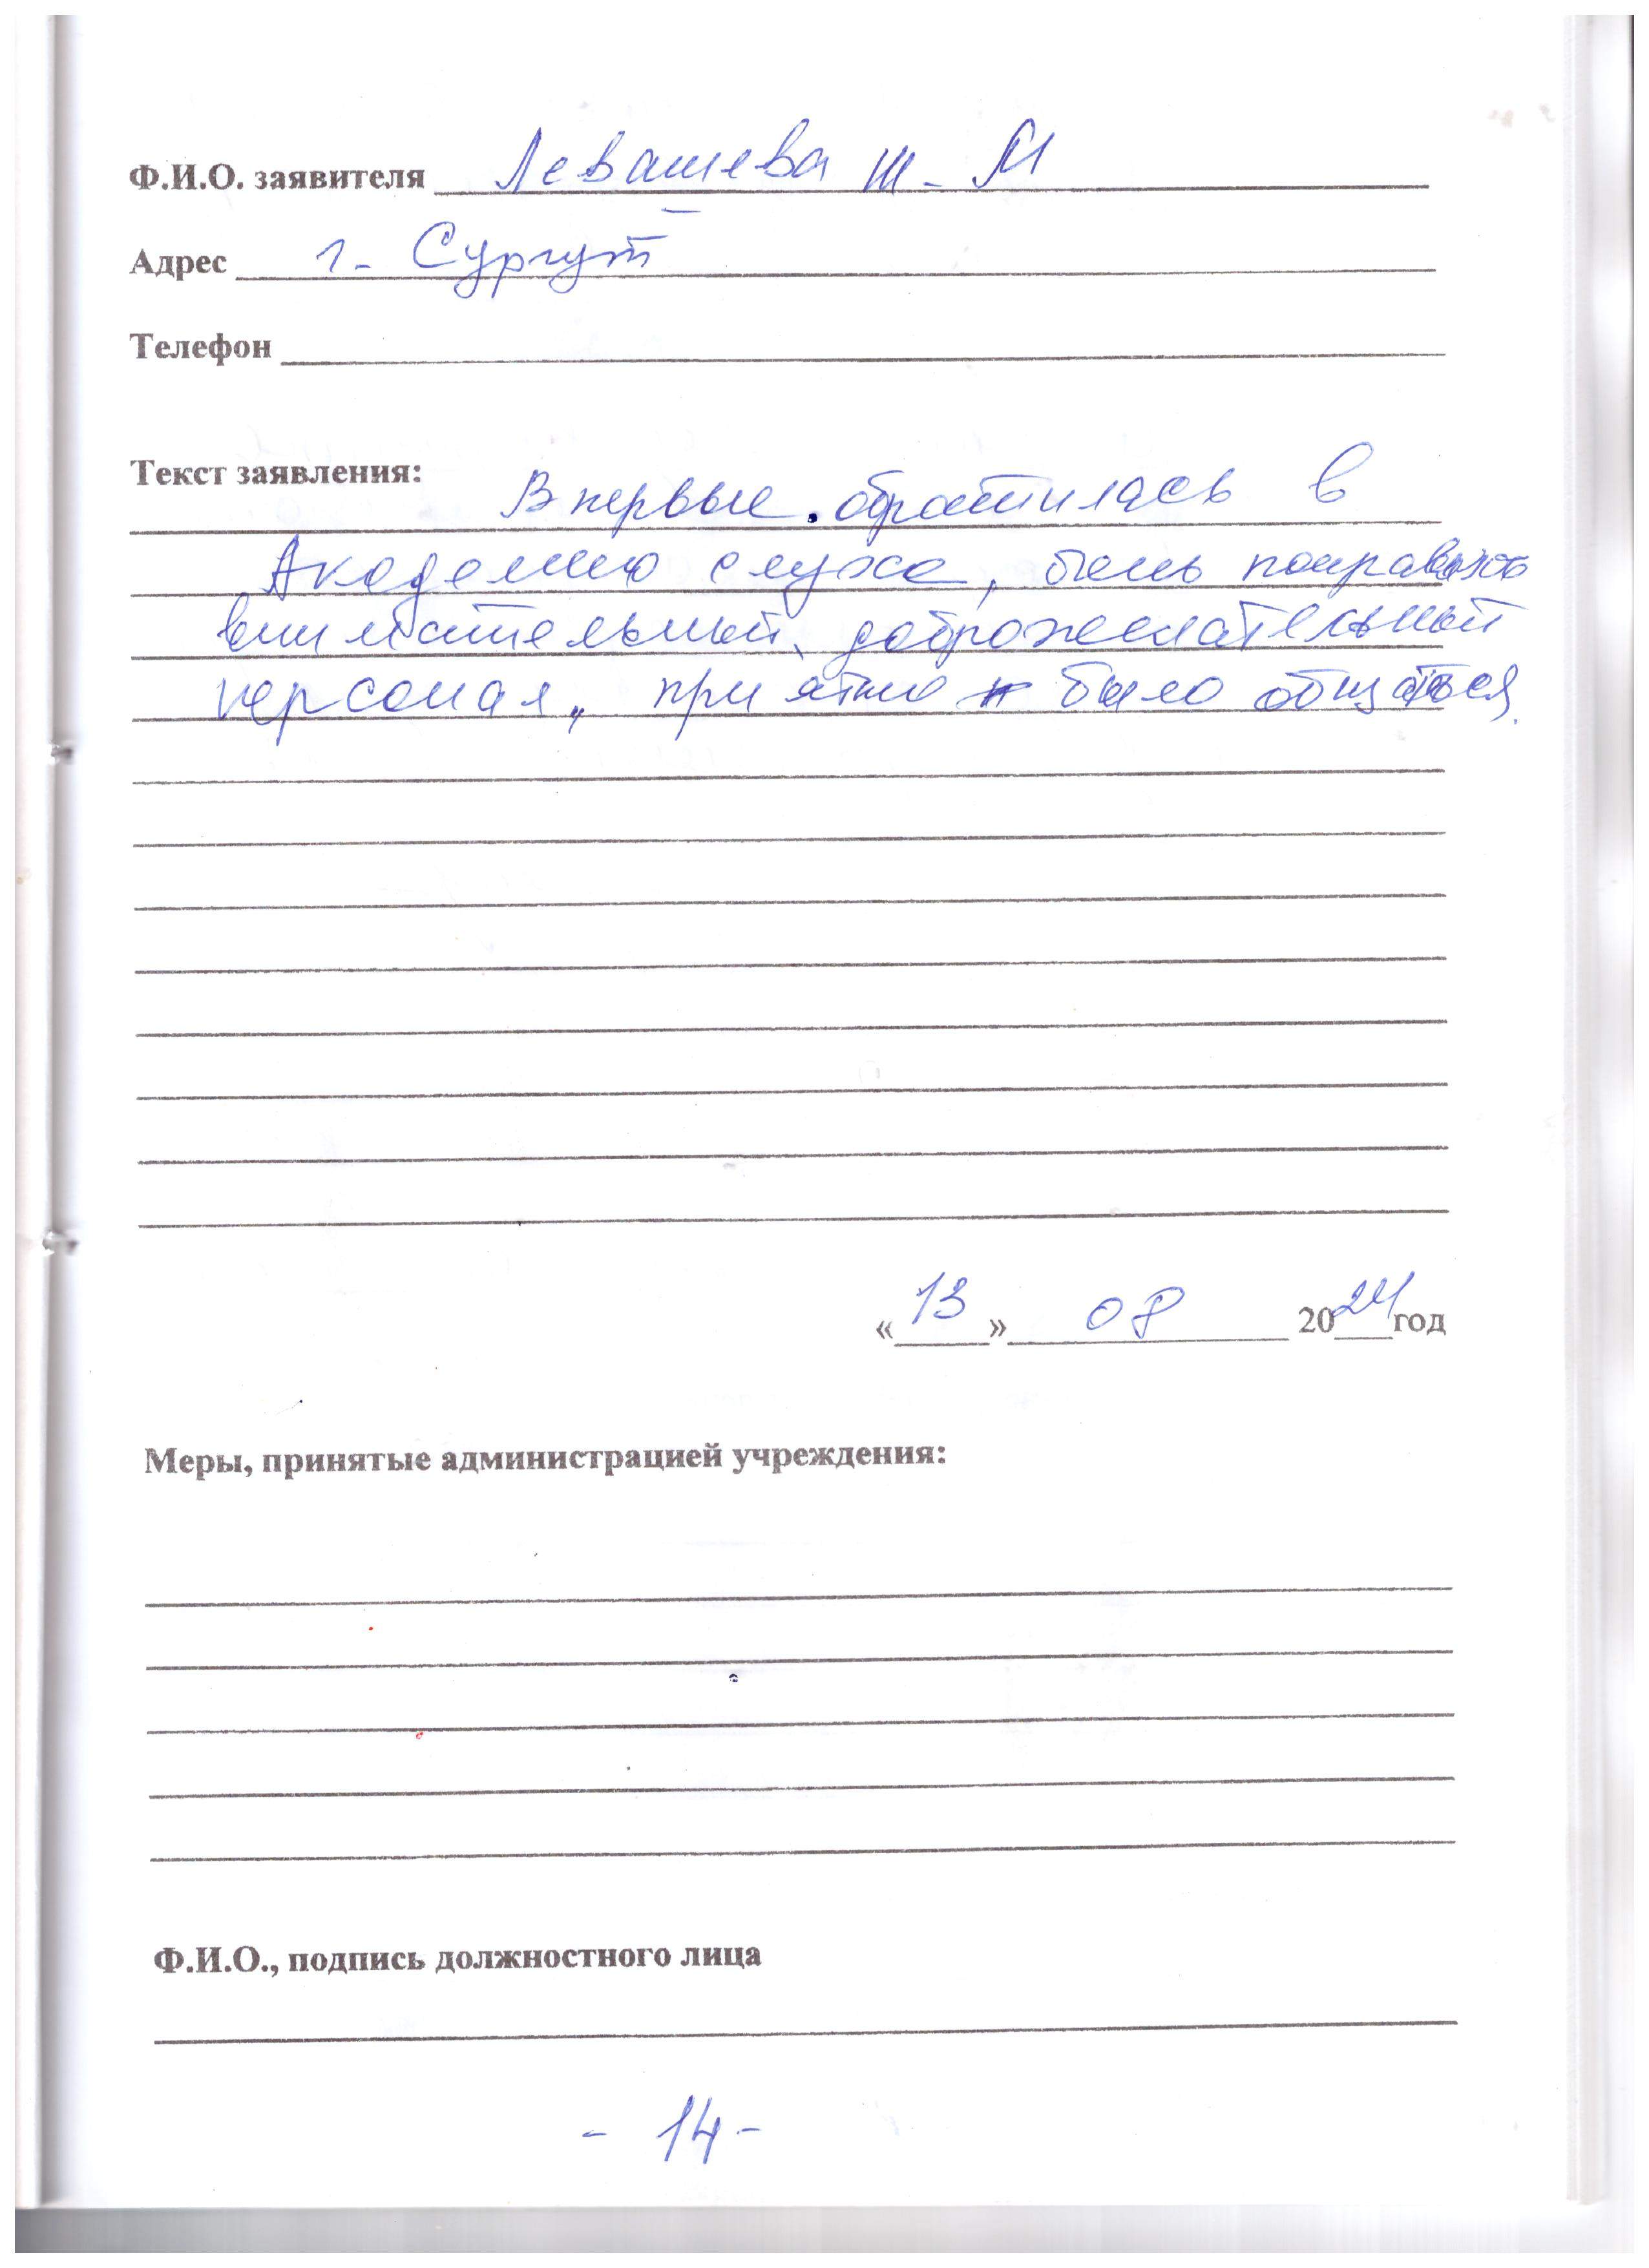 Ф.И.О. заявителя Левашева Т. М
Адрес г. Сургут
Телефон
Текст заявления:
Впервые обратилась в
Академию слуха, очень понравилось
внимательный, доброжелательный
персонал, приятно было общаться.
«13» 08 2024 год
Меры, принятые администрацией учреждения:
Ф.И.О., подпись должностного лица
- 14 -